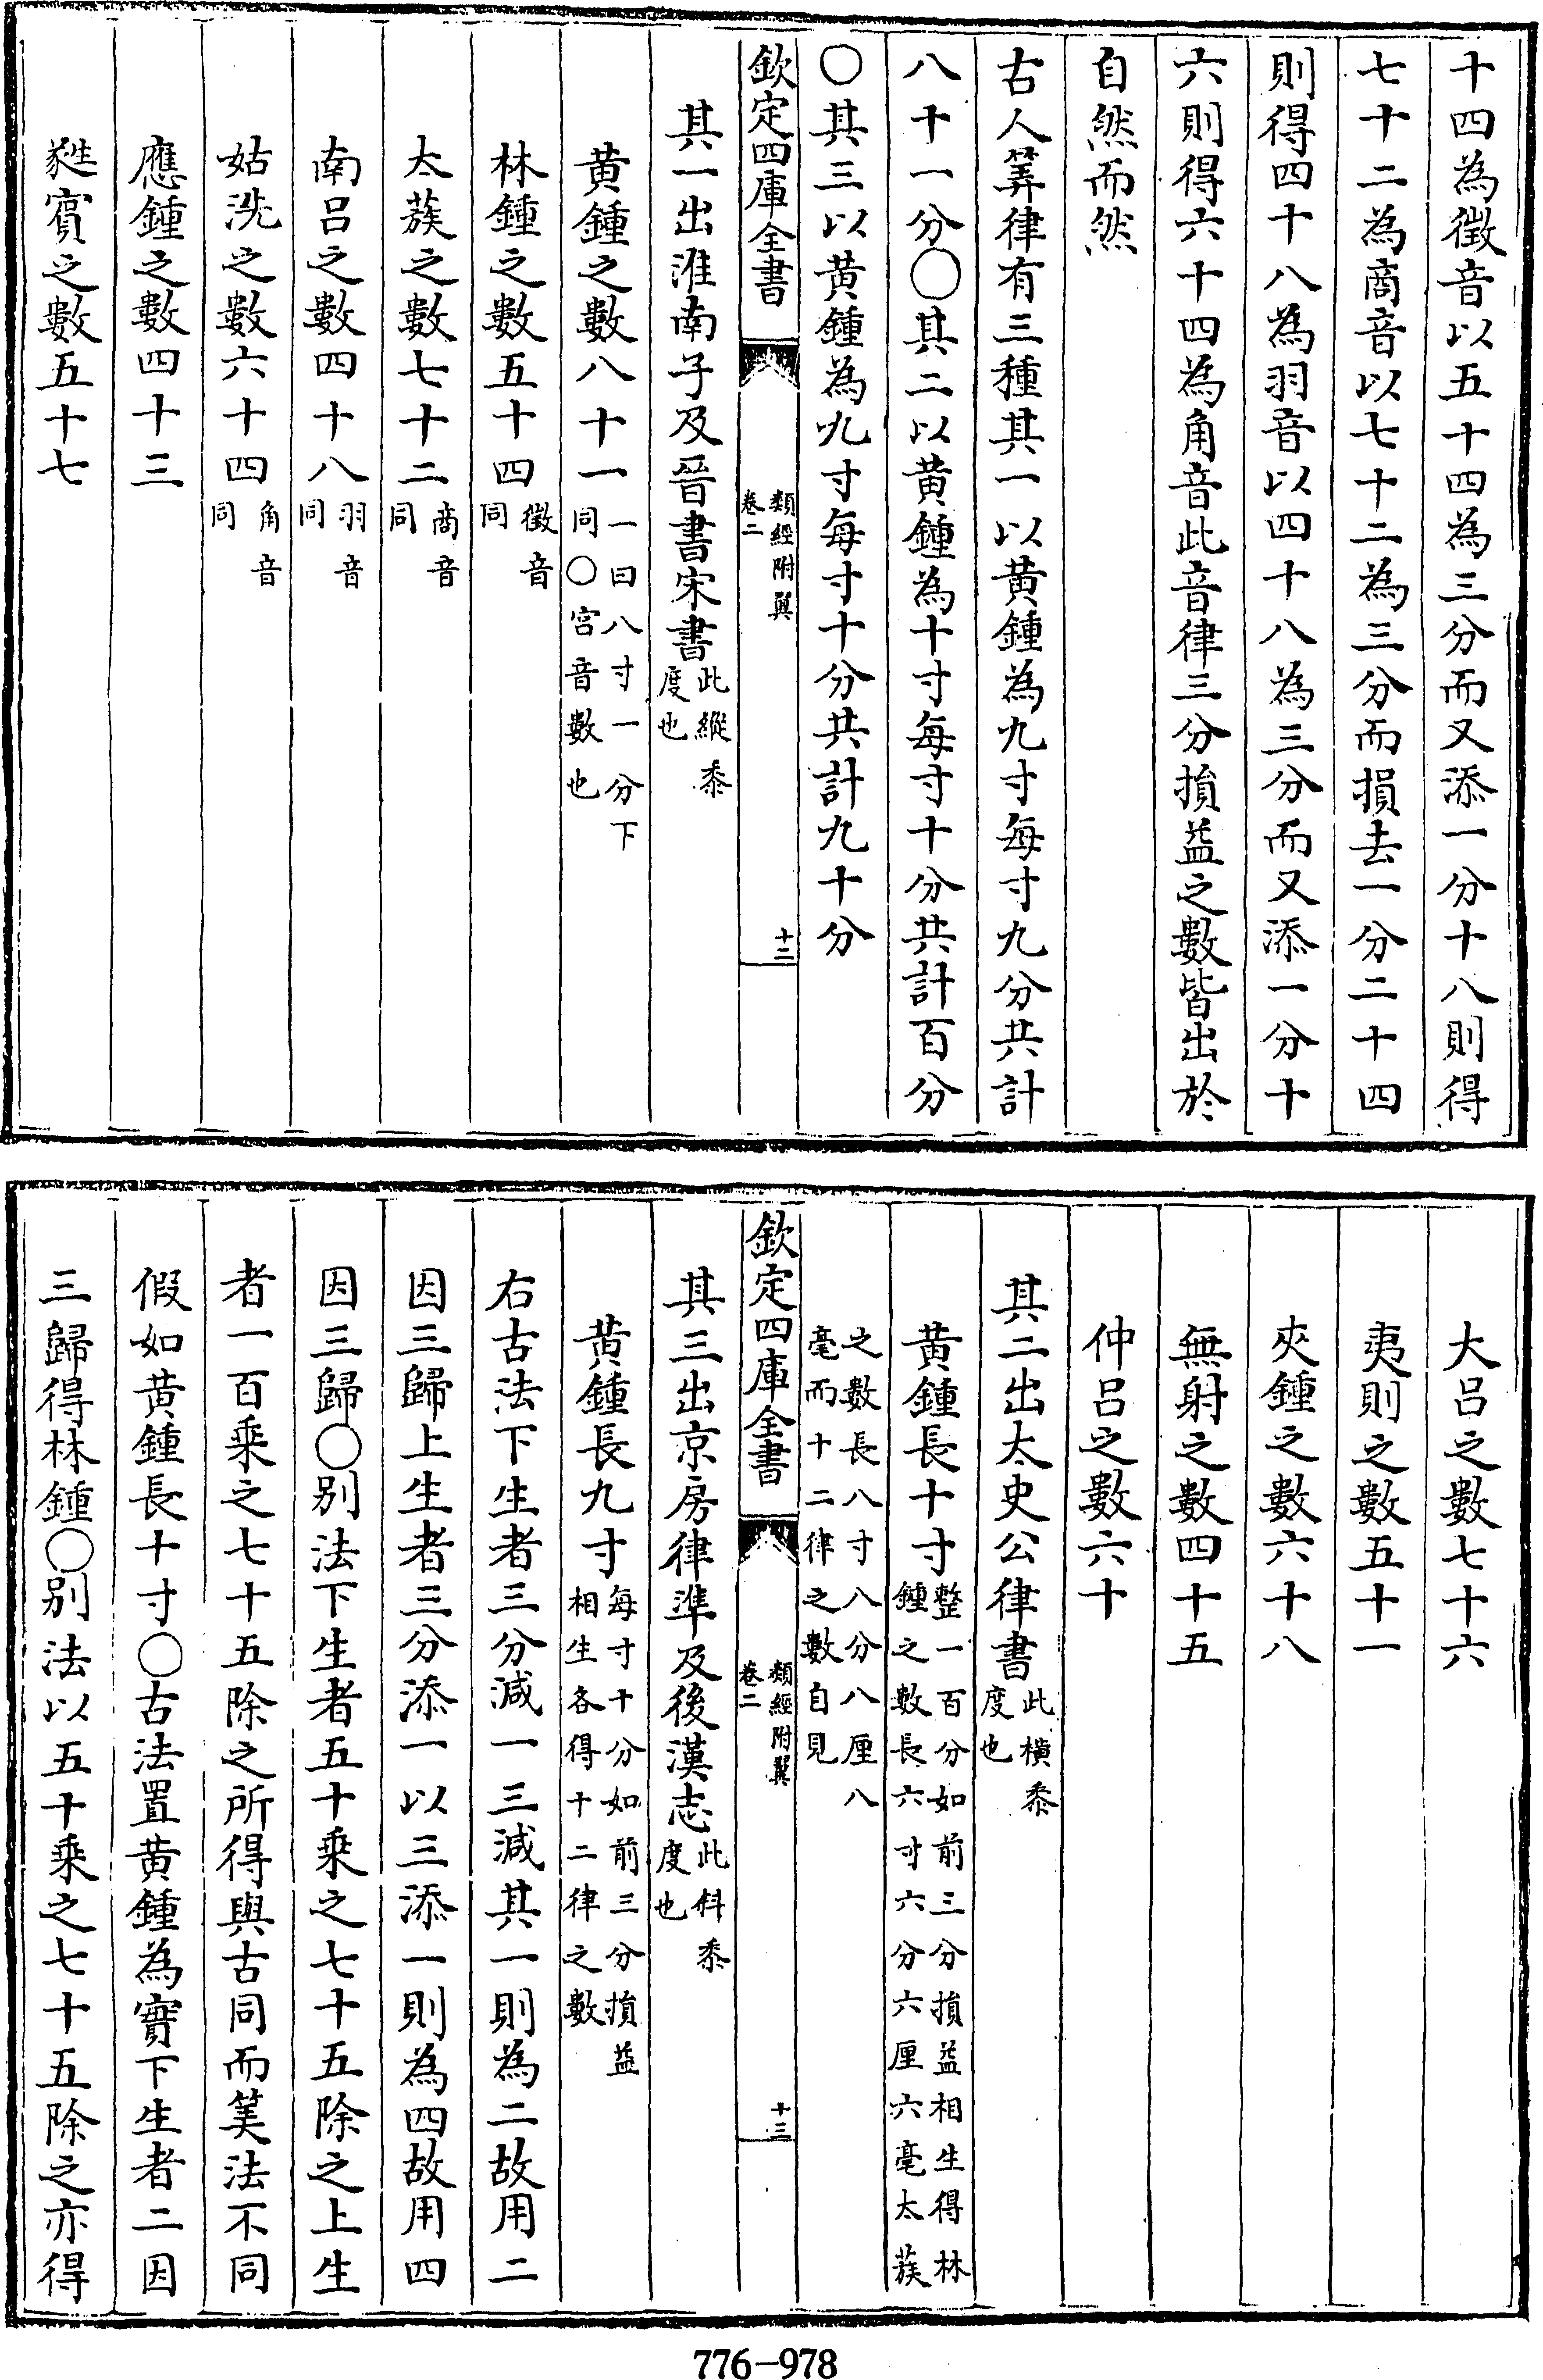 十四為徵音以五十四為三分而又添一分十八則得
七十二為商音以七十二為三分而損去一分二十四
則得四十八為羽音以四十八為三分而又添一分十
六則得六十四為角音此音律三分損益之數皆出於
自然而然
古人筭律有三種其一以黄鍾為九寸每寸九分共計
八十一分〇其二以黄鍾為十寸每寸十分共計百分
〇其三以黄鍾為九寸每寸十分共計九十分
欽定四庫全書 類經附翼 卷二 十二
其一出淮南子及晉書宋書此縱黍度也
黄鍾之數八十一一曰八寸一分下同〇宫音數也
林鍾之數五十四徵音同
太蔟之數七十二商音同
南呂之數四十八羽音同
姑洗之數六十四角音同
應鍾之數四十三
蕤賓之數五十七
大呂之數七十六
夷則之數五十一
夾鍾之數六十八
無射之數四十五
仲呂之數六十
其二出太史公律書此橫黍度也
黄鍾長十寸整一百分如前三分損益相生得林鍾之數長六寸六分六厘六毫太蔟
之數長八寸八分八厘八毫而十二律之數自見
欽定四庫全書 類經附翼 卷二 十三
其三出京房律準及後漢志此斜黍度也
黄鍾長九寸每寸十分如前三分損益相生各得十二律之數
右古法下生者三分減一三減其一則為二故用二
因三歸上生者三分添一以三添一則為四故用四
因三歸〇别法下生者五十乘之七十五除之上生
者一百乘之七十五除之所得與古同而筭法不同
假如黄鍾長十寸〇古法置黄鍾為實下生者二因
三歸得林鍾〇别法以五十乘之七十五除之亦得
776-978